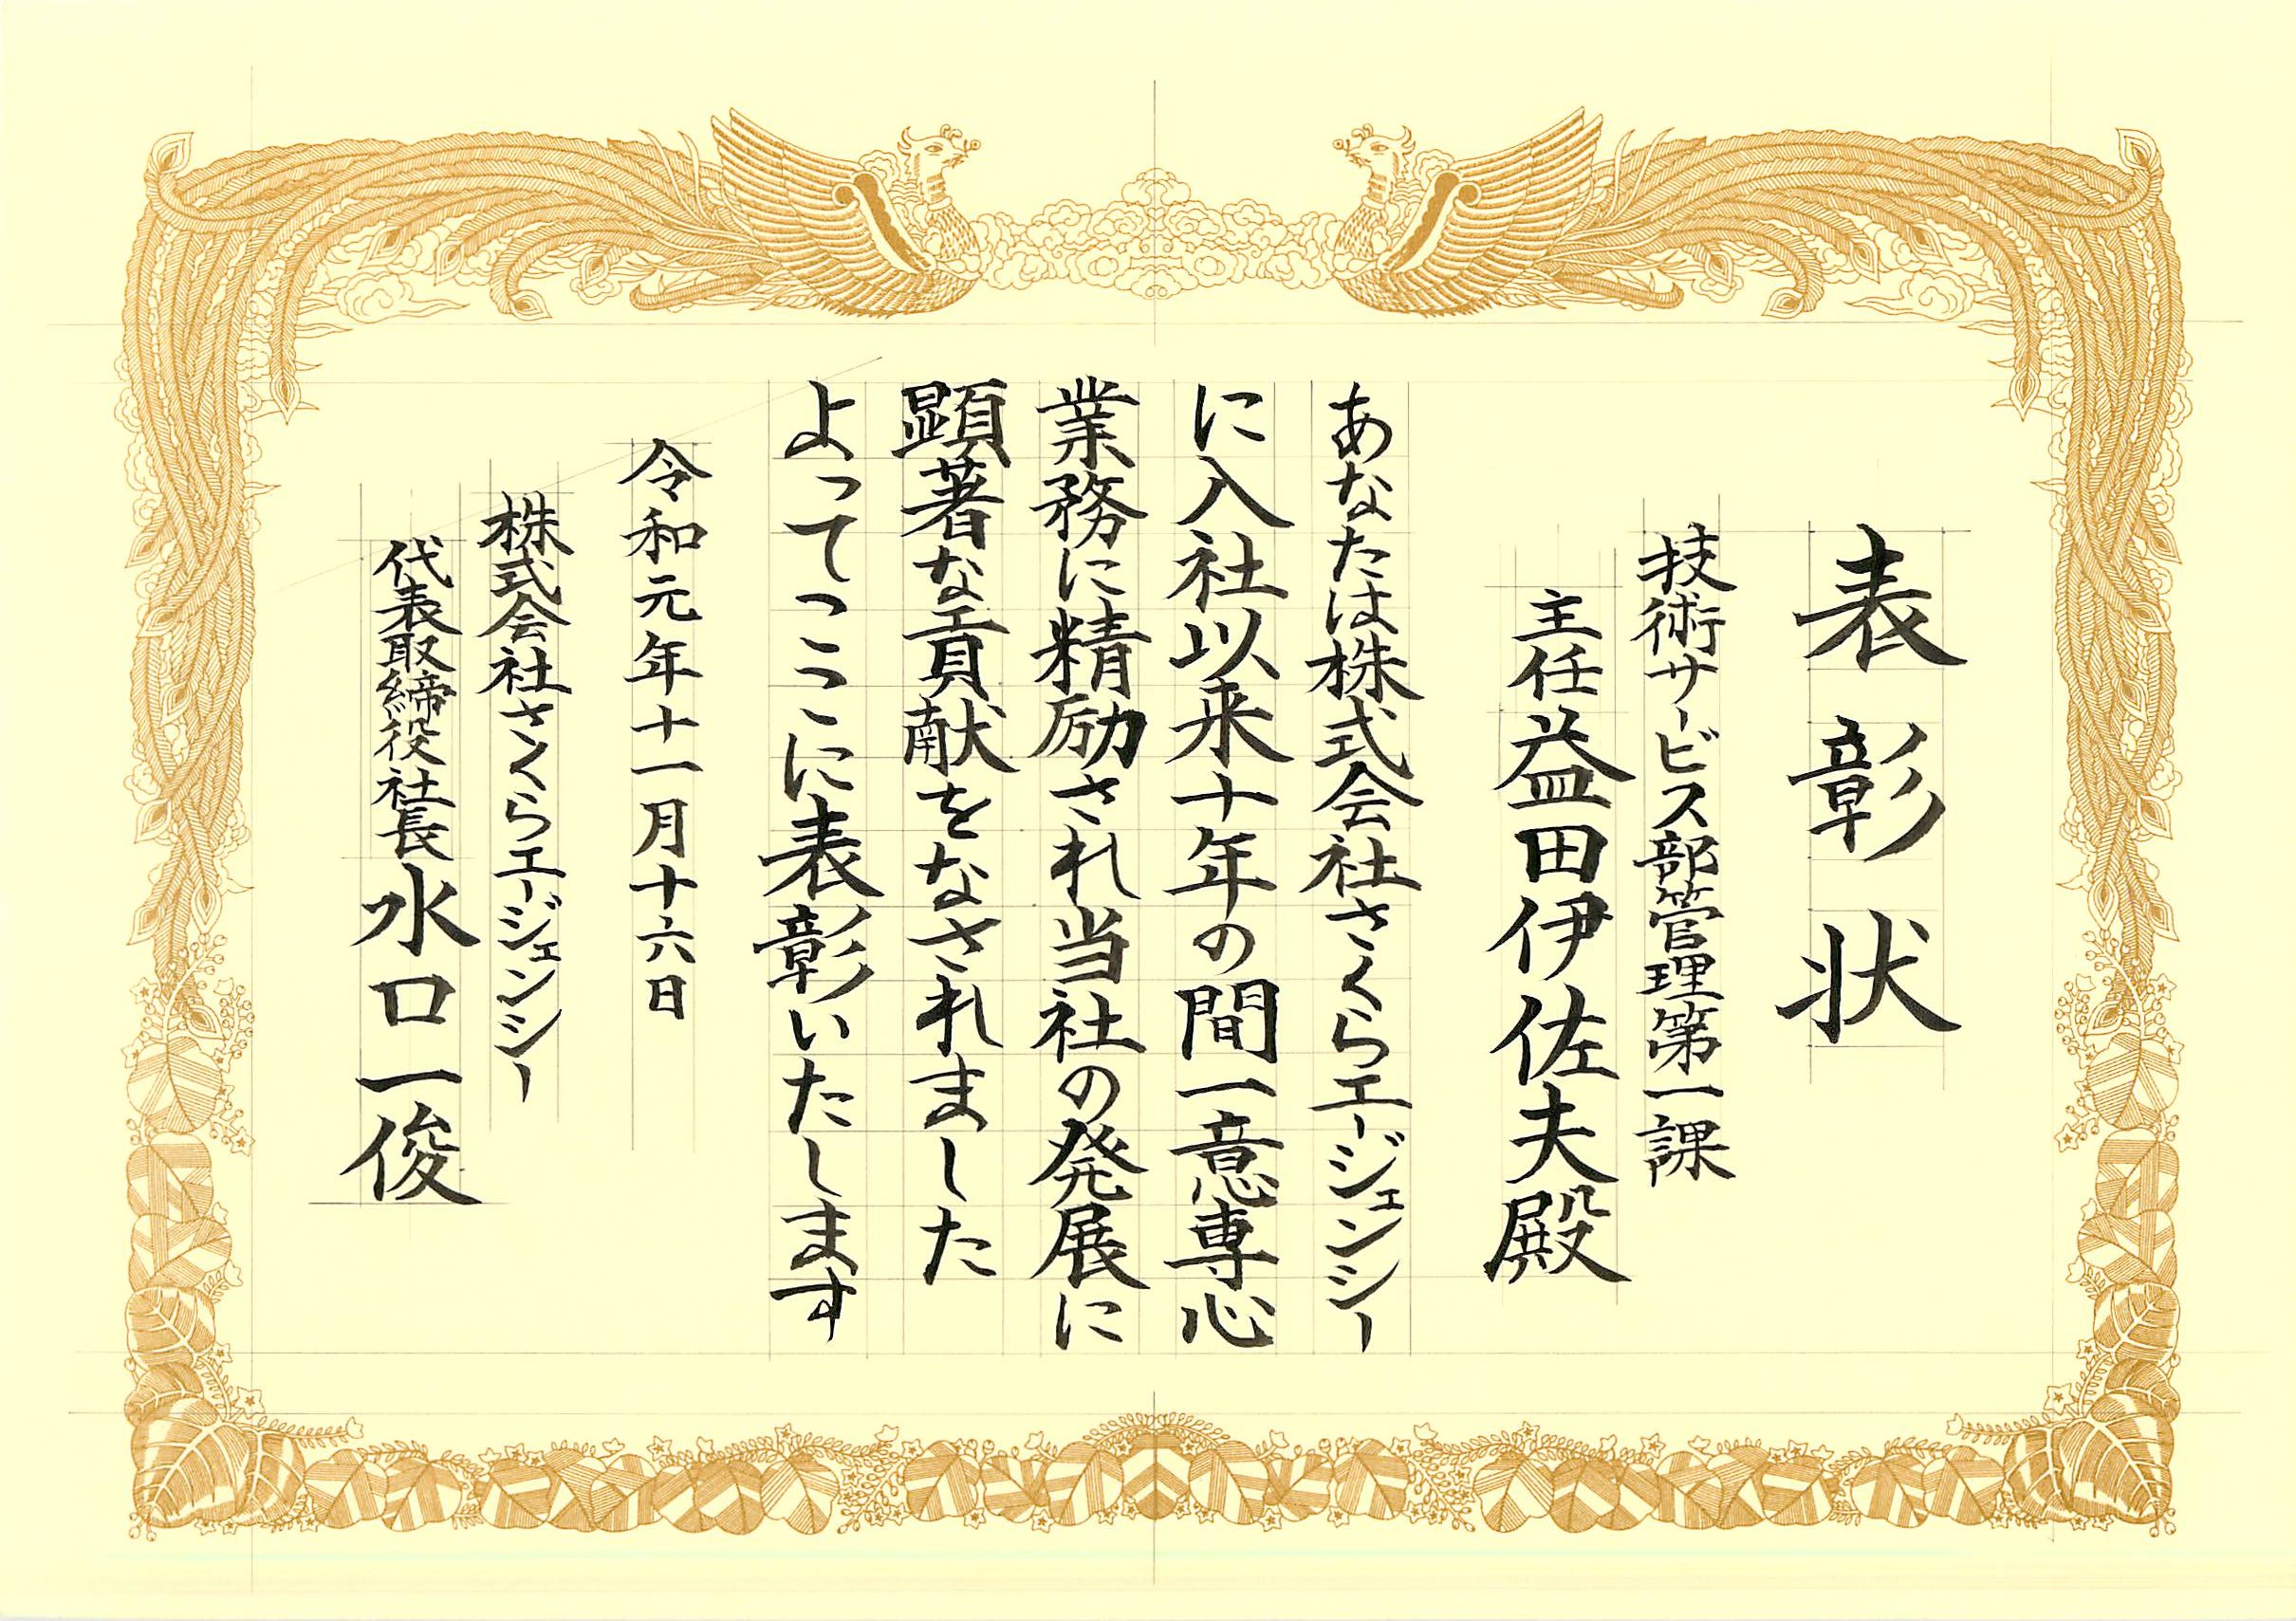 表彰状
技術サービス部管理第一課
主任益田伊佐夫殿
あなたは株式会社さくらエージェンシー
に入社以来十年の間一意専心
業務に精励され当社の発展に
顕著な貢献をなされました
よってここに表彰いたします
令和元年十一月十六日
株式会社さくらエージェンシー
代表取締役社長水口一俊